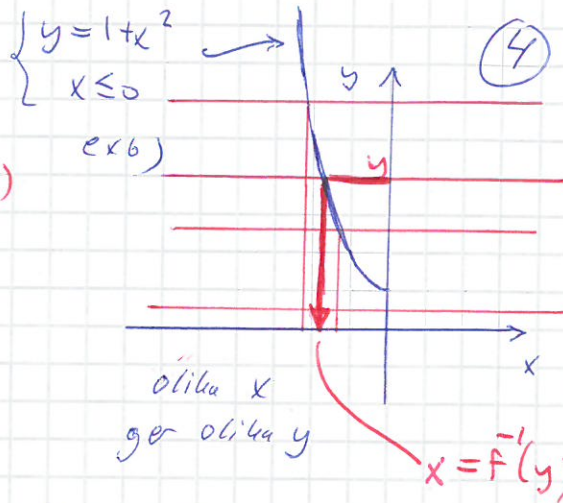 y = 1+x²
x ≤ 0
④
y
ex 6)
)
y
x
olika x
ger olika y
x = f⁻¹(y)